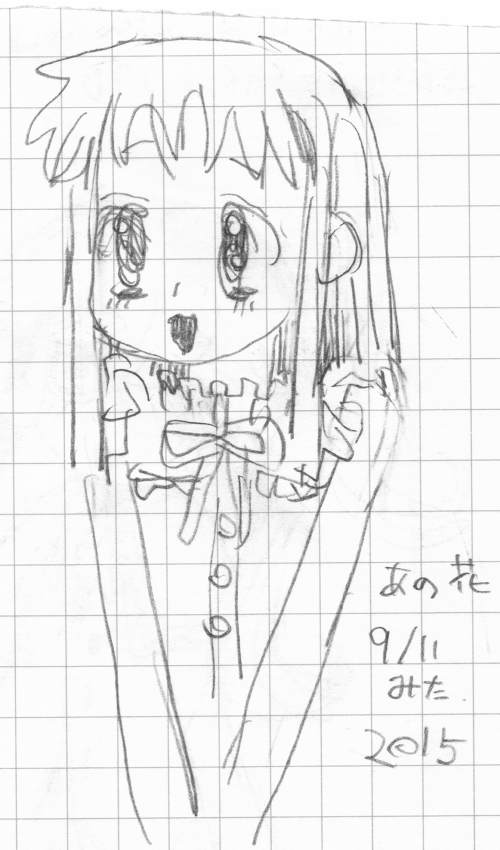 あの花
9/11
みた
2015